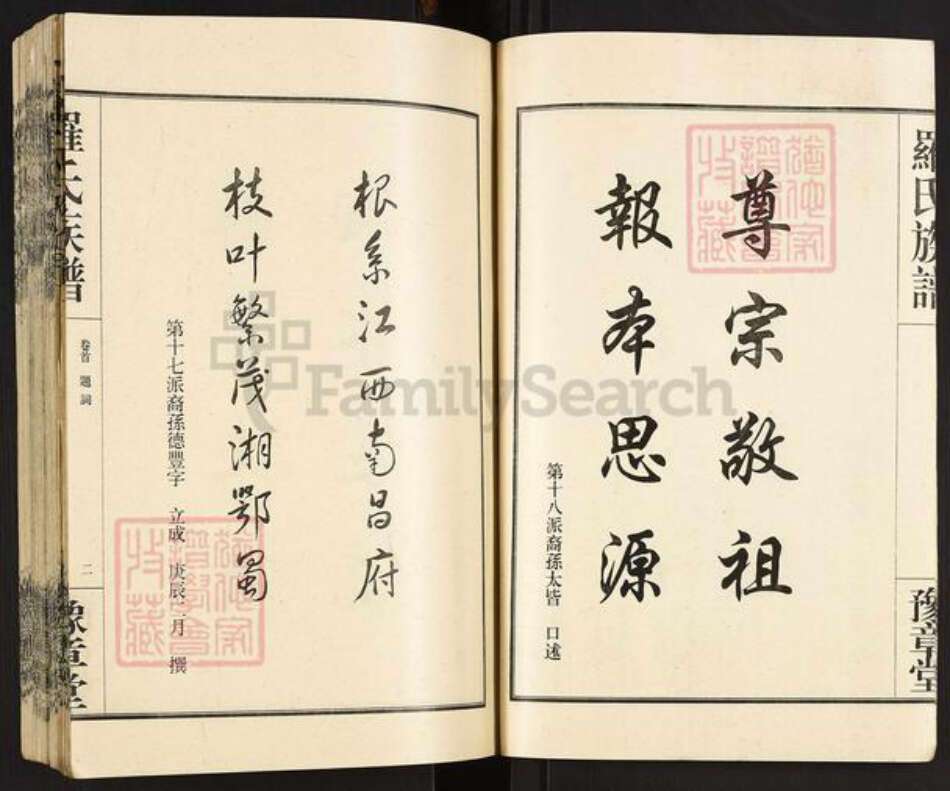 羅氏族譜
豫章堂
尊宗敬祖
報本思源
第十八派裔孫太皆 口述
根系江西南昌府
枝叶繁茂湘鄂蜀
第十七派裔孫德豐字 立成 庚辰二月 撰
羅氏族譜
卷首 題詞
二
豫章堂
FamilySearch